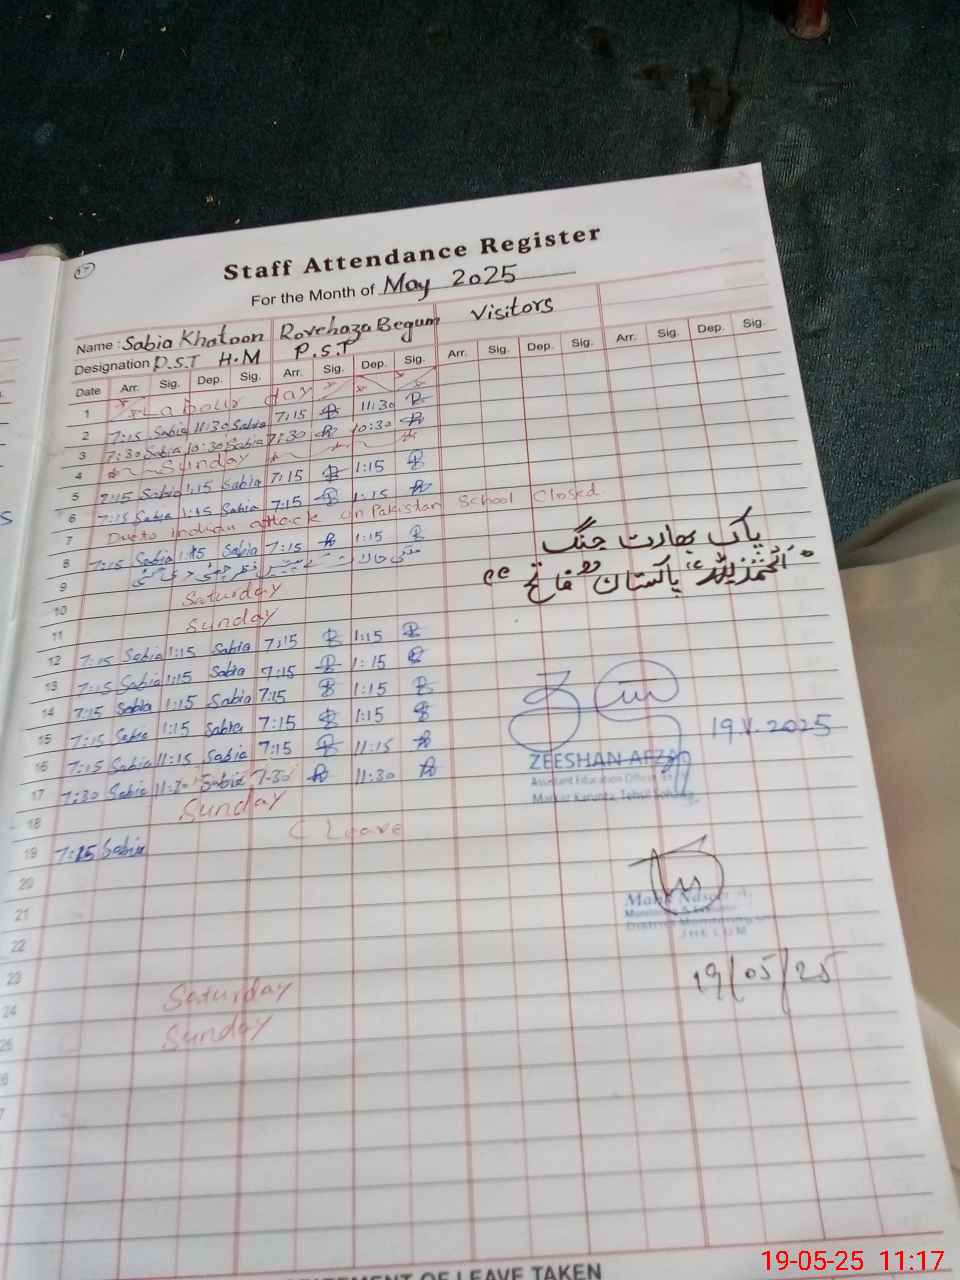 17
Staff Attendance Register
For the Month of May 2025
Name: Sabia Khatoon Rovehaza Begum Visitors
Designation P.S.T H.M P.S.T
Date Arr. Sig. Dep. Sig. Arr. Sig. Dep. Sig. Arr. Sig. Dep. Sig. Arr. Sig. Dep. Sig.
1 Labour day
2 7:15 Sabia 11:30 Sabia 7:15 11:30
3 7:30 Sabia 10:30 Sabia 7:30 10:30
4 Sunday
5 7:15 Sabia 1:15 Sabia 7:15 1:15
6 7:15 Sabia 1:15 Sabia 7:15 1:15
7 Due to Indian attack on Pakistan School Closed.
8 7:15 Sabia 1:15 Sabia 7:15 1:15
پاک بھارت جنگ
9
پاکستان فاتح
10 Saturday
11 Sunday
12 7:15 Sabia 1:15 Sabia 7:15 1:15
13 7:15 Sabia 1:15 Sabia 7:15 1:15
14 7:15 Sabia 1:15 Sabia 7:15 1:15
15 7:15 Sabia 1:15 Sabia 7:15 1:15
16 7:15 Sabia 11:15 Sabia 7:15 11:15
19.V.2025
ZEESHAN AFZAL
Assistant Education Officer
Markaz Karunta, Tehsil Sohawa
17 7:30 Sabia 11:30 Sabia 7:30 11:30
18 Sunday
19 7:15 Sabia C Leave
20
21
District Monitoring
JHELUM
22
23
19/05/25
24 Saturday
25 Sunday
STATEMENT OF LEAVE TAKEN
19-05-25 11:17